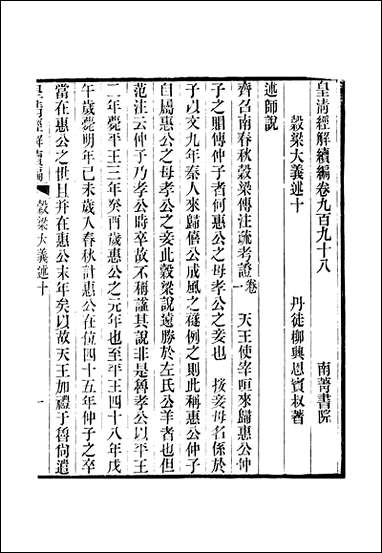 皇淸經解續編卷九百九十八　南菁書院
穀梁大義述十　丹徒柳興恩賓叔著
述師說
齊召南春秋穀梁傳注疏考證一卷　天王使宰咺來歸惠公仲
子之賵傳仲子者何惠公之母孝公之妾也　按妾母名係於
子以文九年秦人來歸僖公成風之襚例之則此稱惠公仲子
自屬惠公之母孝公之妾此穀梁說遠勝於左氏公羊者也但
范注云仲子乃孝公時卒故不稱謚其說非是魯孝公以平王
二年薨平王三年癸酉歲惠公之元年也至平王四十八年戊
午歲薨明年己未歲入春秋計惠公在位四十五年仲子之卒
當在惠公之世且幷在惠公末年矣以故天王加禮于魯尙遣
皇淸經解續編　穀梁大義述十　一